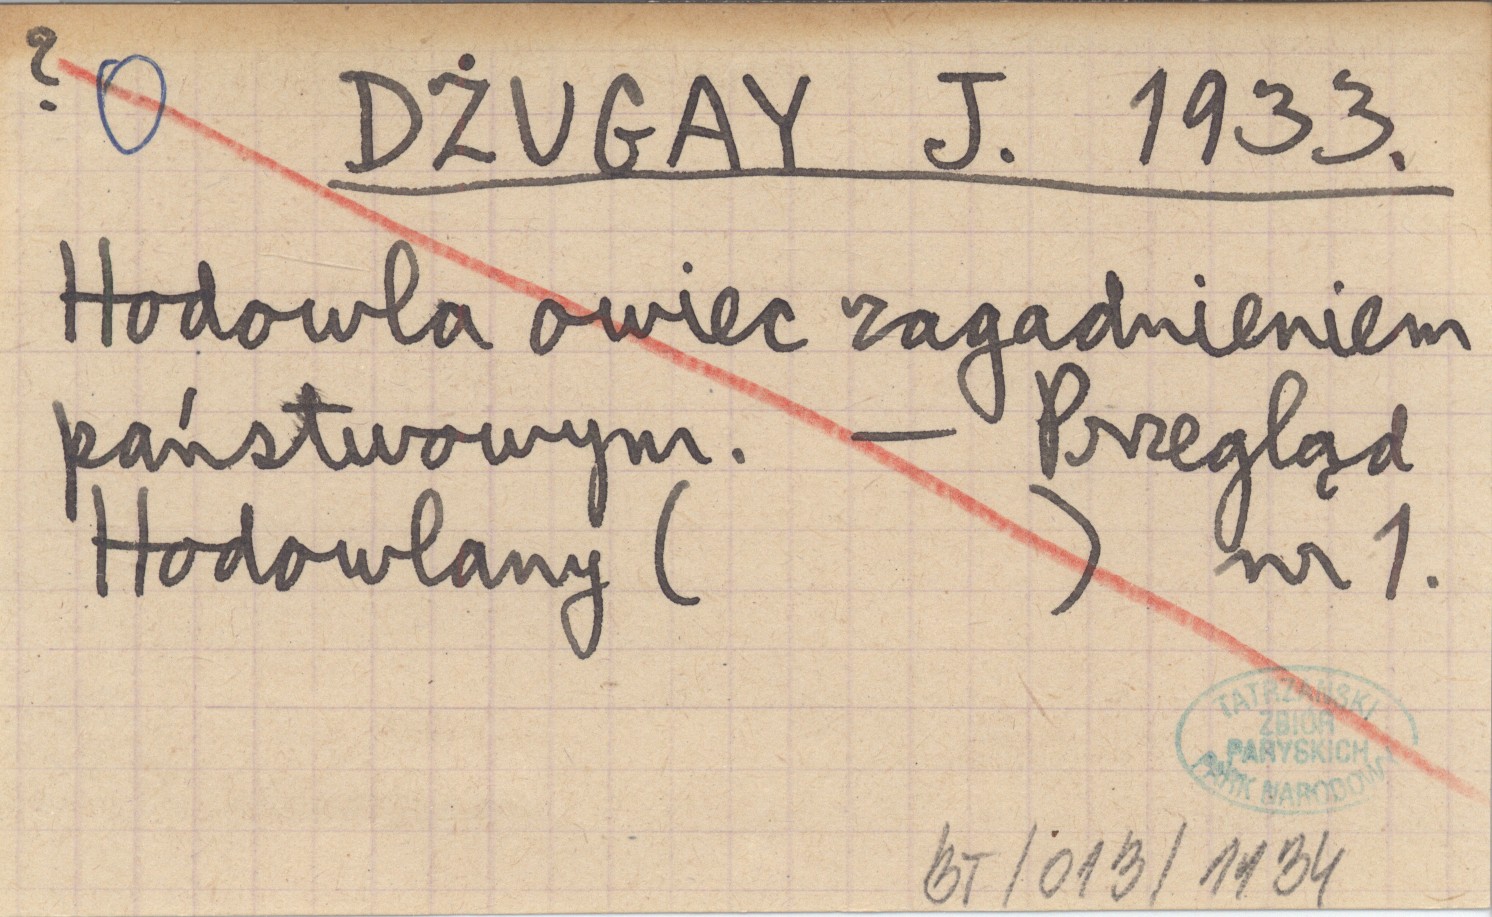 ?
DŻUGAY J. 1933.
Hodowla owiec zagadnieniem
państwowym. — Przegląd
Hodowlany ( ) nr 1.
TATRZAŃSKI
ZBIÓR
PARYSKICH
PARK NARODOWY
BT/013/1134